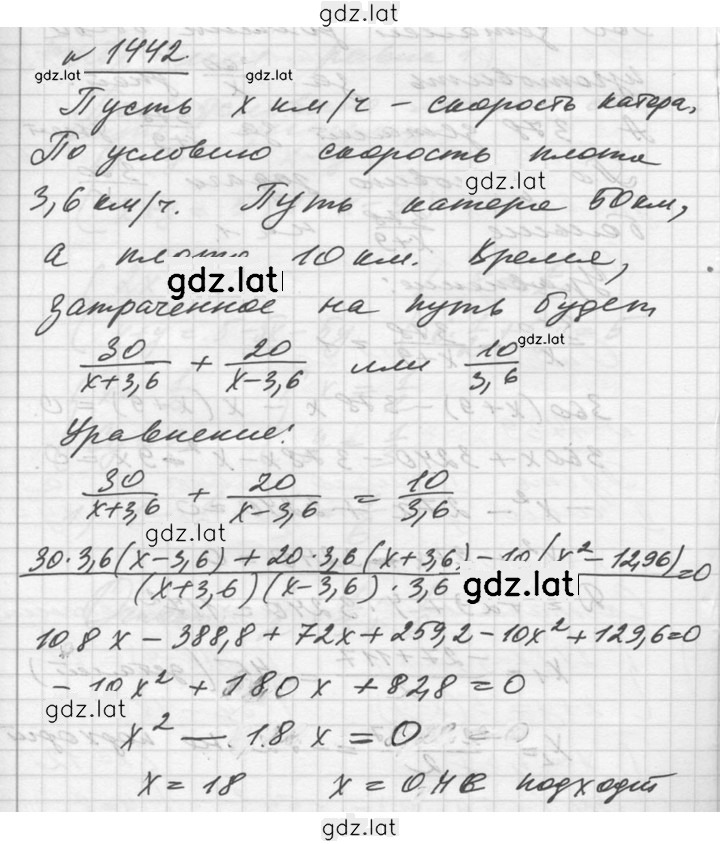 gdz.lat
№ 1442
gdz.lat gdz.lat
Пусть x км/ч – скорость катера,
По условию скорость плота
gdz.lat
3,6 км/ч. Путь катера 50 км,
а плота 10 км. Время,
gdz.lat
затраченное на путь будет
gdz.lat
30/(x+3,6) + 20/(x-3,6) или 10/3,6
Уравнение:
30/(x+3,6) + 20/(x-3,6) = 10/3,6
gdz.lat
(30·3,6(x-3,6) + 20·3,6(x+3,6) - 10(x² - 12,96))/((x+3,6)(x-3,6)·3,6) = 0
gdz.lat
108x - 388,8 + 72x + 259,2 - 10x² + 129,6 = 0
- 10x² + 180x + 828 = 0
gdz.lat
x² - 18x = 0
x = 18 x = 0 не подходит
gdz.lat